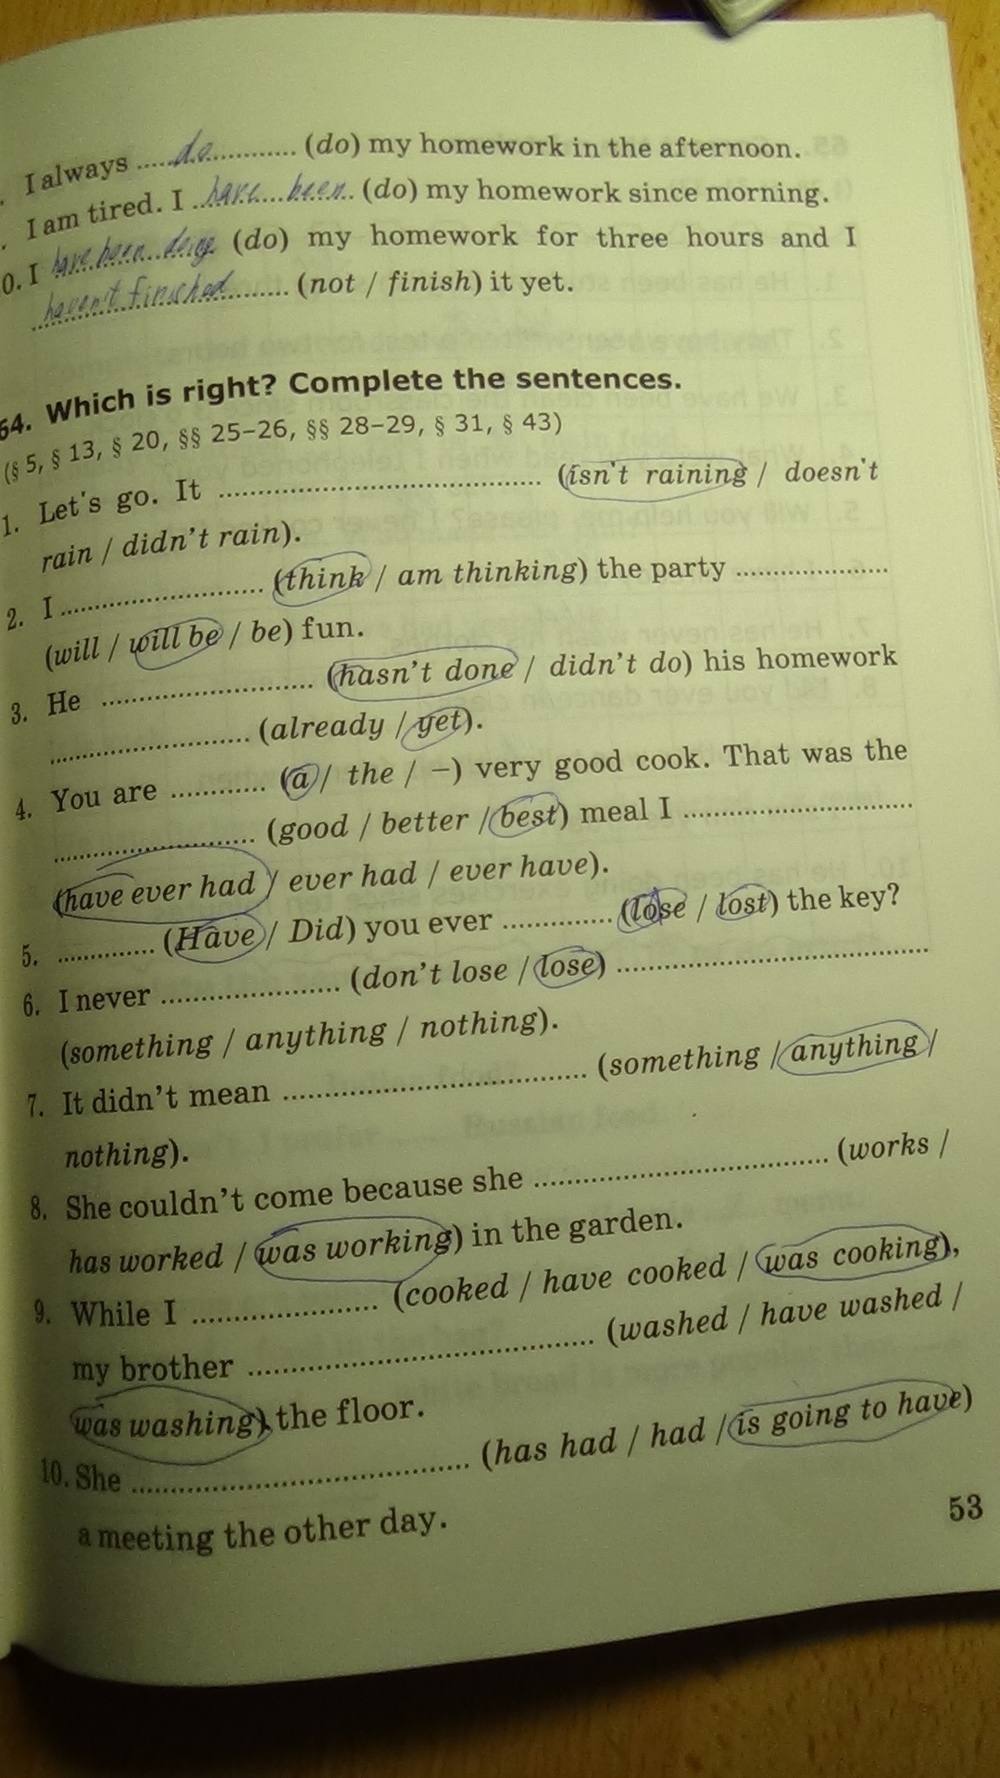 . I always ..... do ............ (do) my homework in the afternoon.
. I am tired. I ... have ... been .. (do) my homework since morning.
0. I have been doing (do) my homework for three hours and I
haven't finished ......... (not / finish) it yet.
64. Which is right? Complete the sentences.
(§ 5, § 13, § 20, §§ 25–26, §§ 28–29, § 31, § 43)
1. Let's go. It .................................... (isn't raining / doesn't
rain / didn't rain).
2. I ....................... (think / am thinking) the party .................
(will / will be / be) fun.
3. He ........................ (hasn't done / didn't do) his homework
....................... (already / yet).
4. You are ........... (a / the / –) very good cook. That was the
....................... (good / better / best) meal I ..........................
(have ever had / ever had / ever have).
5. ........... (Have / Did) you ever ............ (lose / lost) the key?
6. I never .................... (don't lose / lose) ...................................
(something / anything / nothing).
7. It didn't mean .................................. (something / anything /
nothing).
8. She couldn't come because she ................................. (works /
has worked / was working) in the garden.
9. While I ..................... (cooked / have cooked / was cooking),
my brother ....................................... (washed / have washed /
was washing) the floor.
10. She ...................................... (has had / had / is going to have)
a meeting the other day.
53